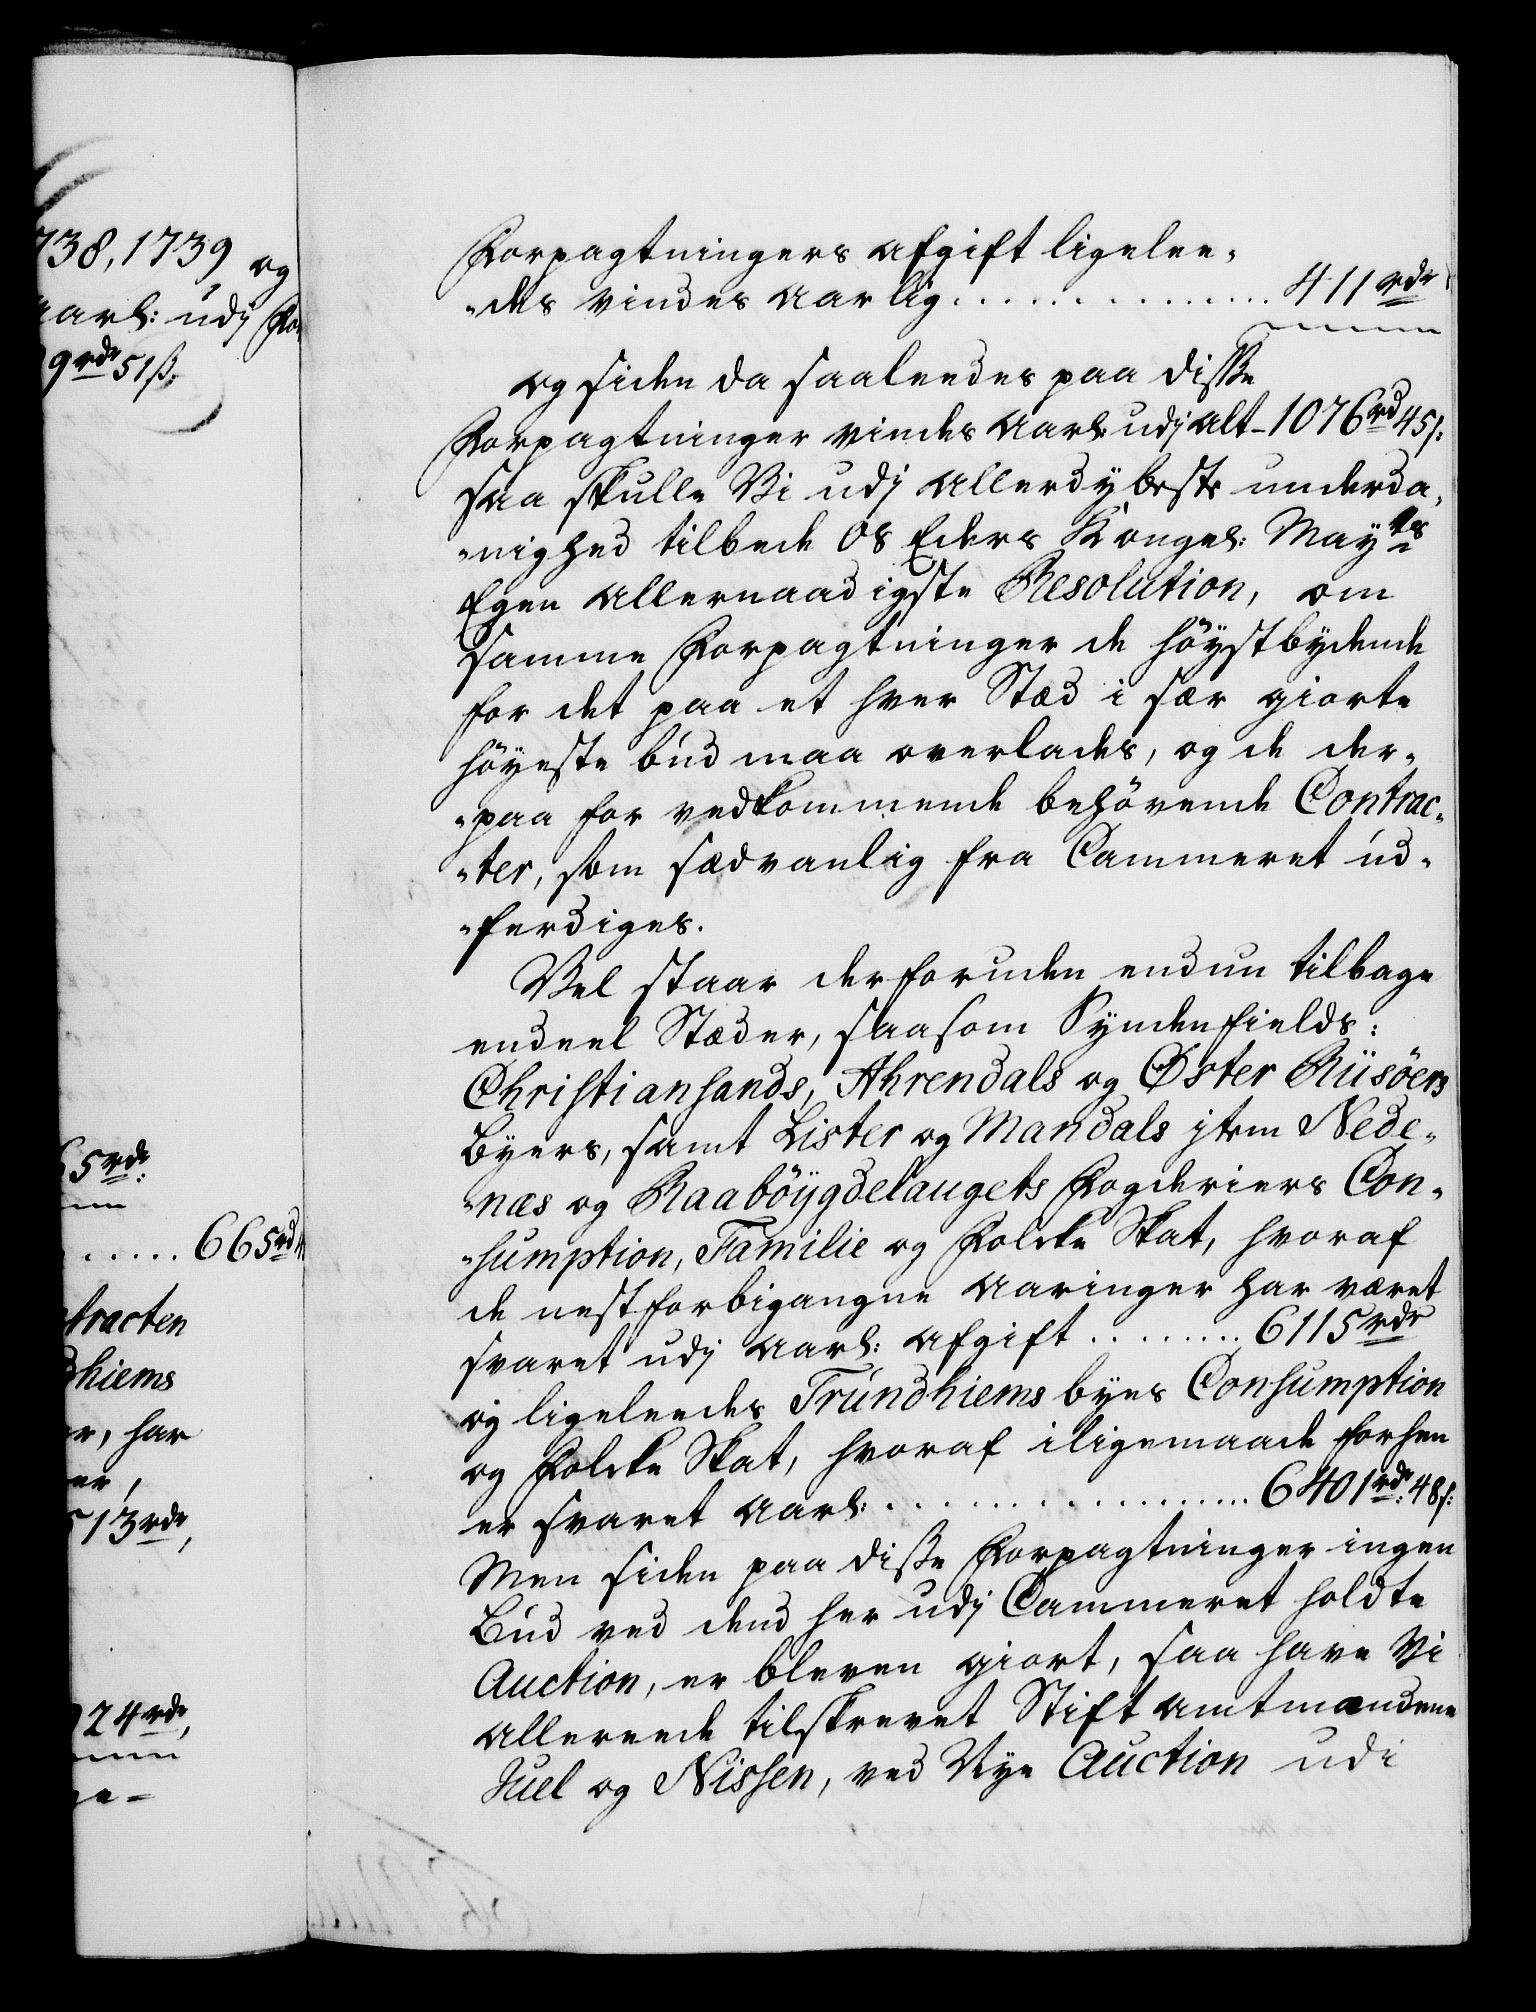 738, 1739 og
aarl: udj For
9 rdr 51 ß.
65 rdr:
..... 665 rd
tracten
dhiems
er, har
er,
513 rdr,
924 rdr,
Forpagtningers afgift ligelee-
-des vindes aarlig .............. 411 rdr
og siden da saaleedes paa disse
Forpagtninger vindes aarl: udj alt - 1076 rd 45 ß:
saa skulle Vi udj allerdybeste underda-
-nighed tilbede os Eders Kongel: Mayts
Egen allernaadigste Resolution, om
samme Forpagtninger de höystbydende
for det paa et hver Stæd i sær giorte
höyeste bud maa overlades, og de der-
-paa for vedkommende behövende Contrac-
-ter, som sædvanlig fra Cammeret ud-
-ferdiges.
Vel staar derforuden endnu tilbage
endeel Stæder, saasom Syndenfields:
Christiansands, Ahrendals og Øster Riisöers
Byers, samt Lister og Mandals jtem Nede-
-næs og Raaböygdelaugets Fogderiers Con-
-sumption, Familie og Folcke Skat, hvoraf
de nestforbigangne Aaringer har været
svaret udj aarl: afgift ........ 6115 rdr
og ligeleedes Trundhiems byes Consumption
og Folcke Skat, hvoraf iligemaade forhen
er svaret aarl: .................. 6401 rdr: 48 ß:
Men siden paa disse Forpagtninger ingen
Bud ved dend her udj Cammeret holdte
Auction, er bleven giort, saa have Vi
allereede tilskrevet Stift amtmændene
Juel og Nissen, ved Nye Auction udi